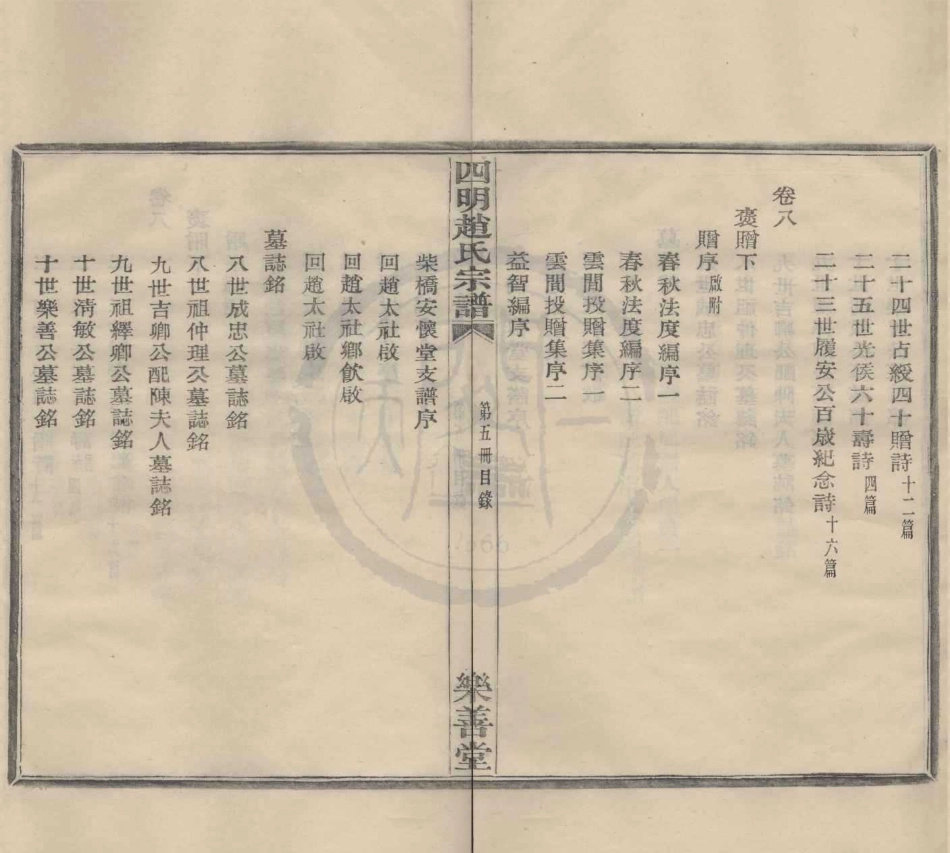 二十四世占綬四十贈詩十二篇
二十五世光侯六十壽詩四篇
二十三世履安公百歲紀念詩十六篇
卷八
褒贈下
贈序啟附
春秋法度編序一
春秋法度編序二
雲間投贈集序
雲間投贈集序二
益智編序
四明趙氏宗譜
第五冊目錄
樂善堂
柴橋安懷堂支譜序
回趙太社啟
回趙太社鄉飲啟
回趙太社啟
墓誌銘
八世成忠公墓誌銘
八世祖仲理公墓誌銘
九世吉卿公配陳夫人墓誌銘
九世祖繹卿公墓誌銘
十世淸敏公墓誌銘
十世樂善公墓誌銘